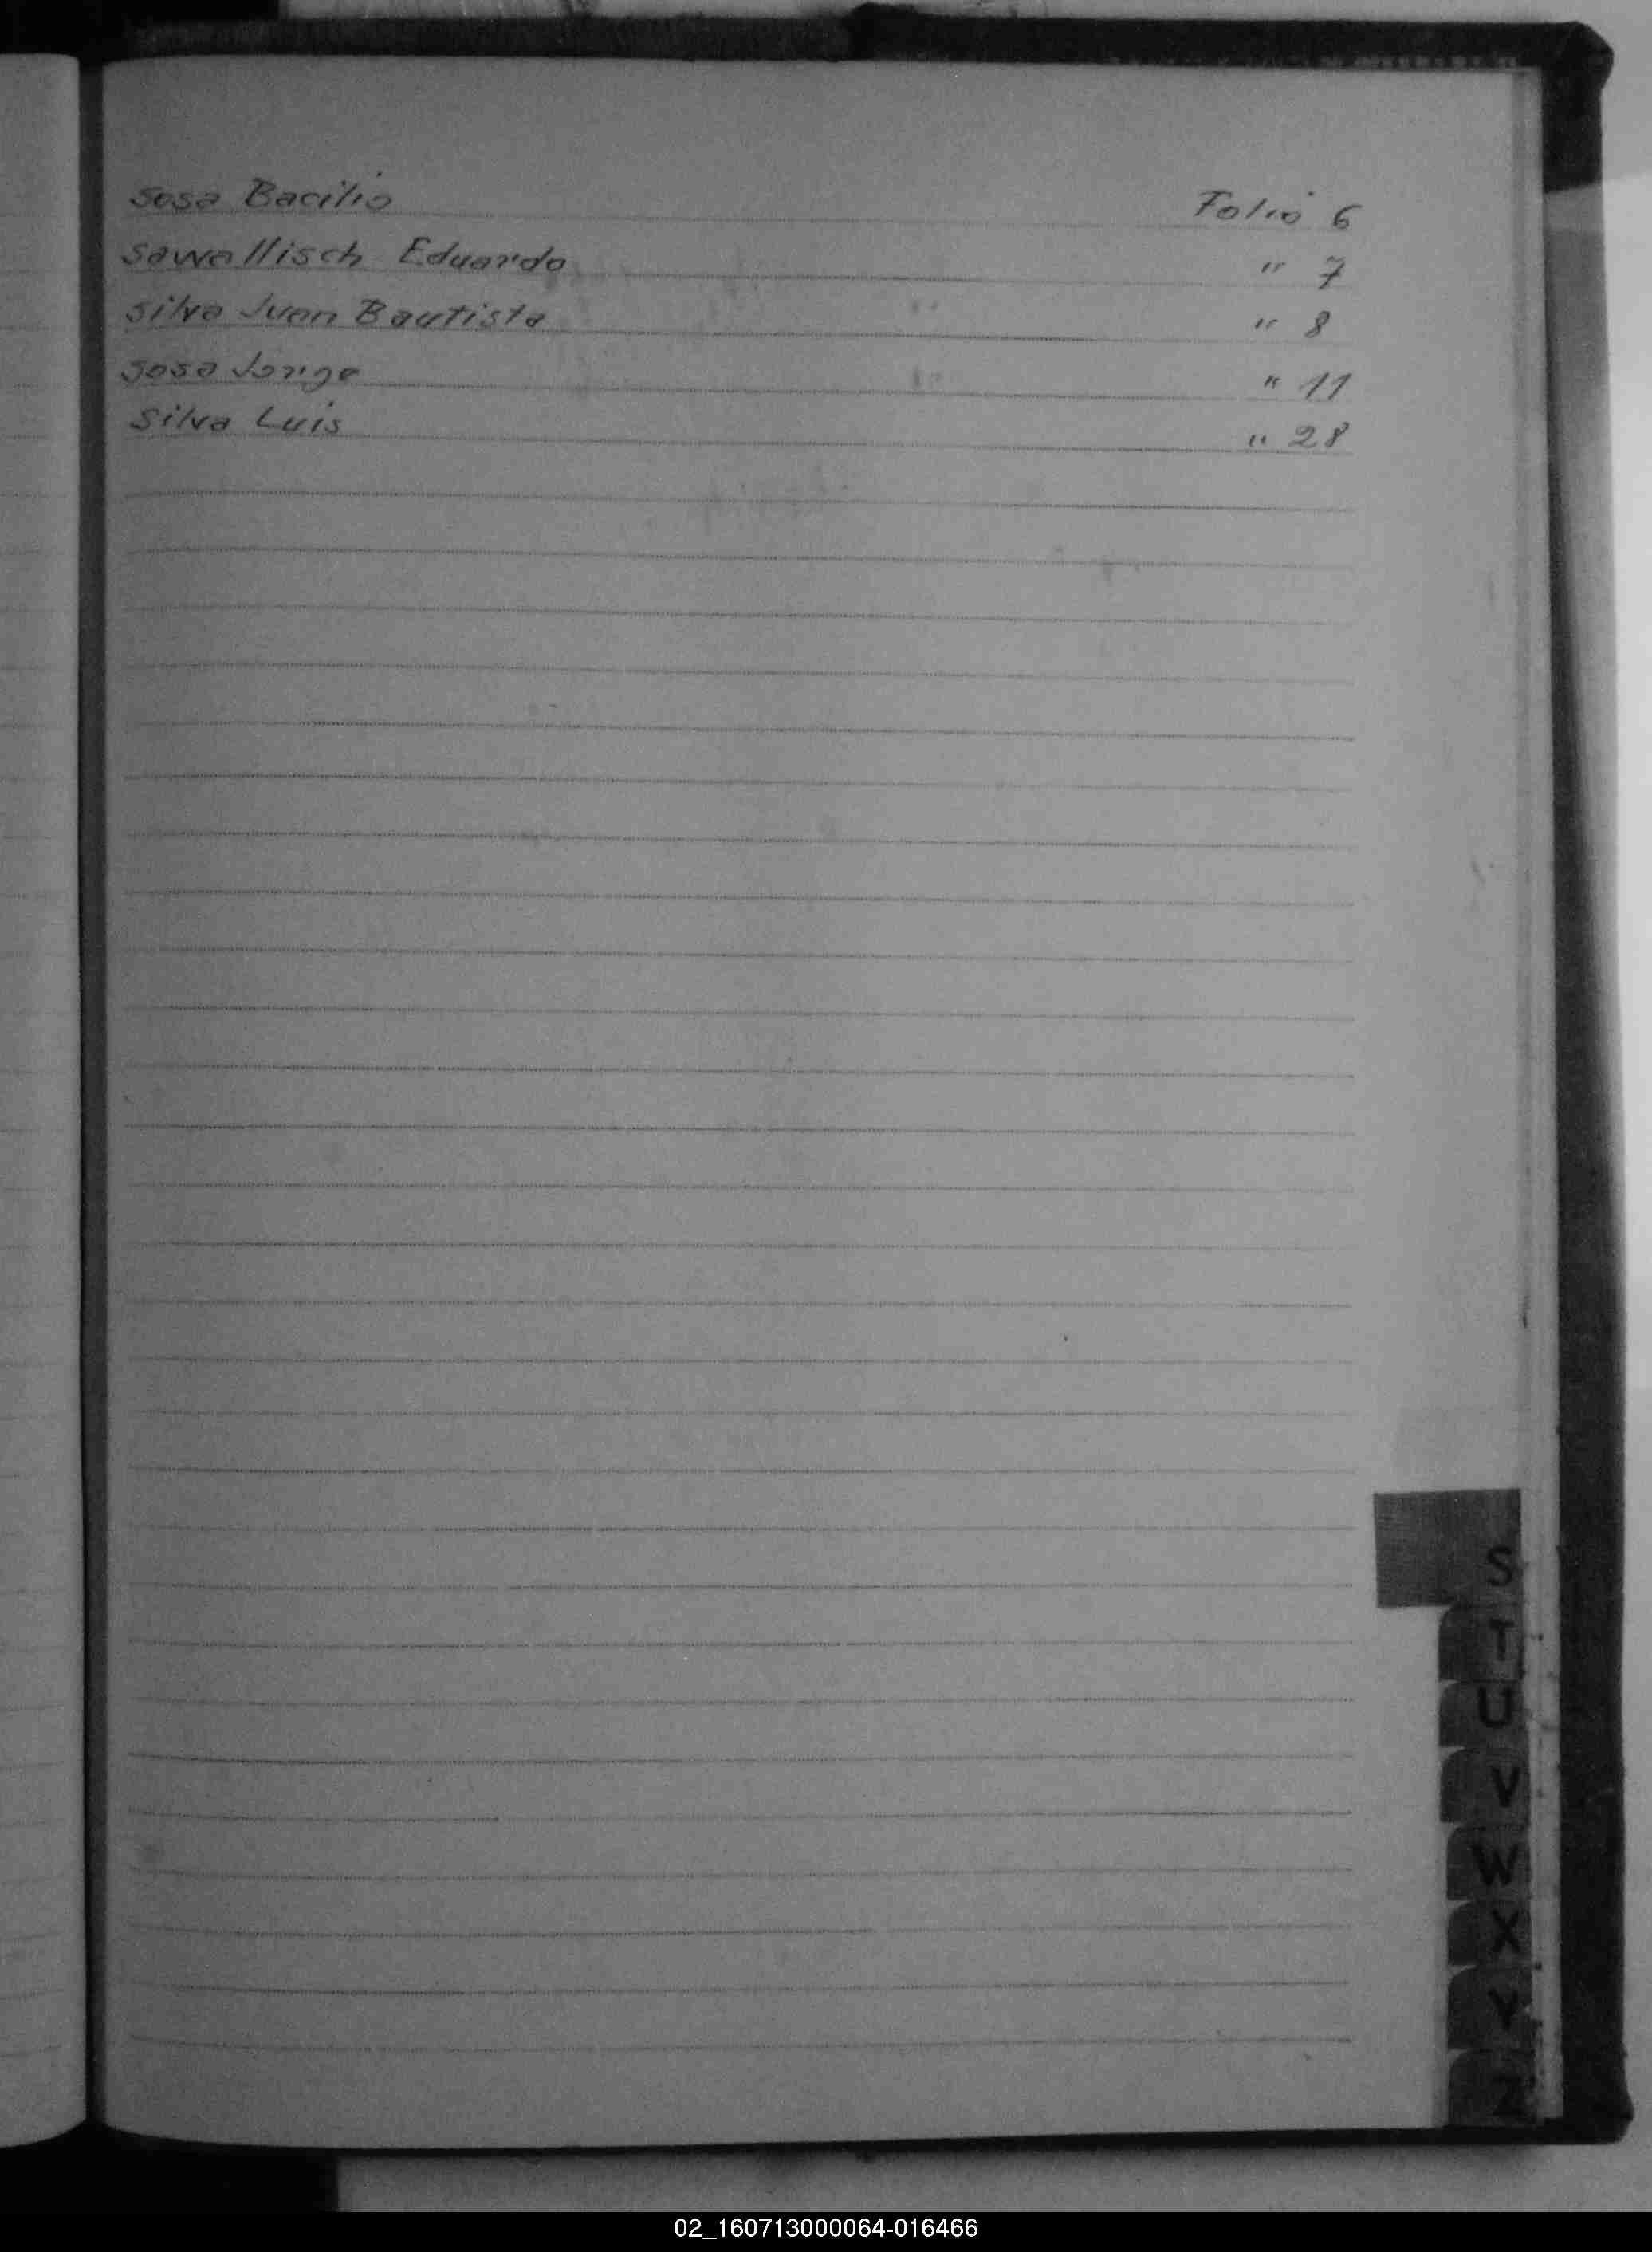 Sosa Bacilio Folio 6
Sawallisch Eduardo " 7
Silva Juan Bautista " 8
Sosa Jorge " 11
Silva Luis " 28
S
T
U
V
W
X
Y
Z
02_160713000064-016466